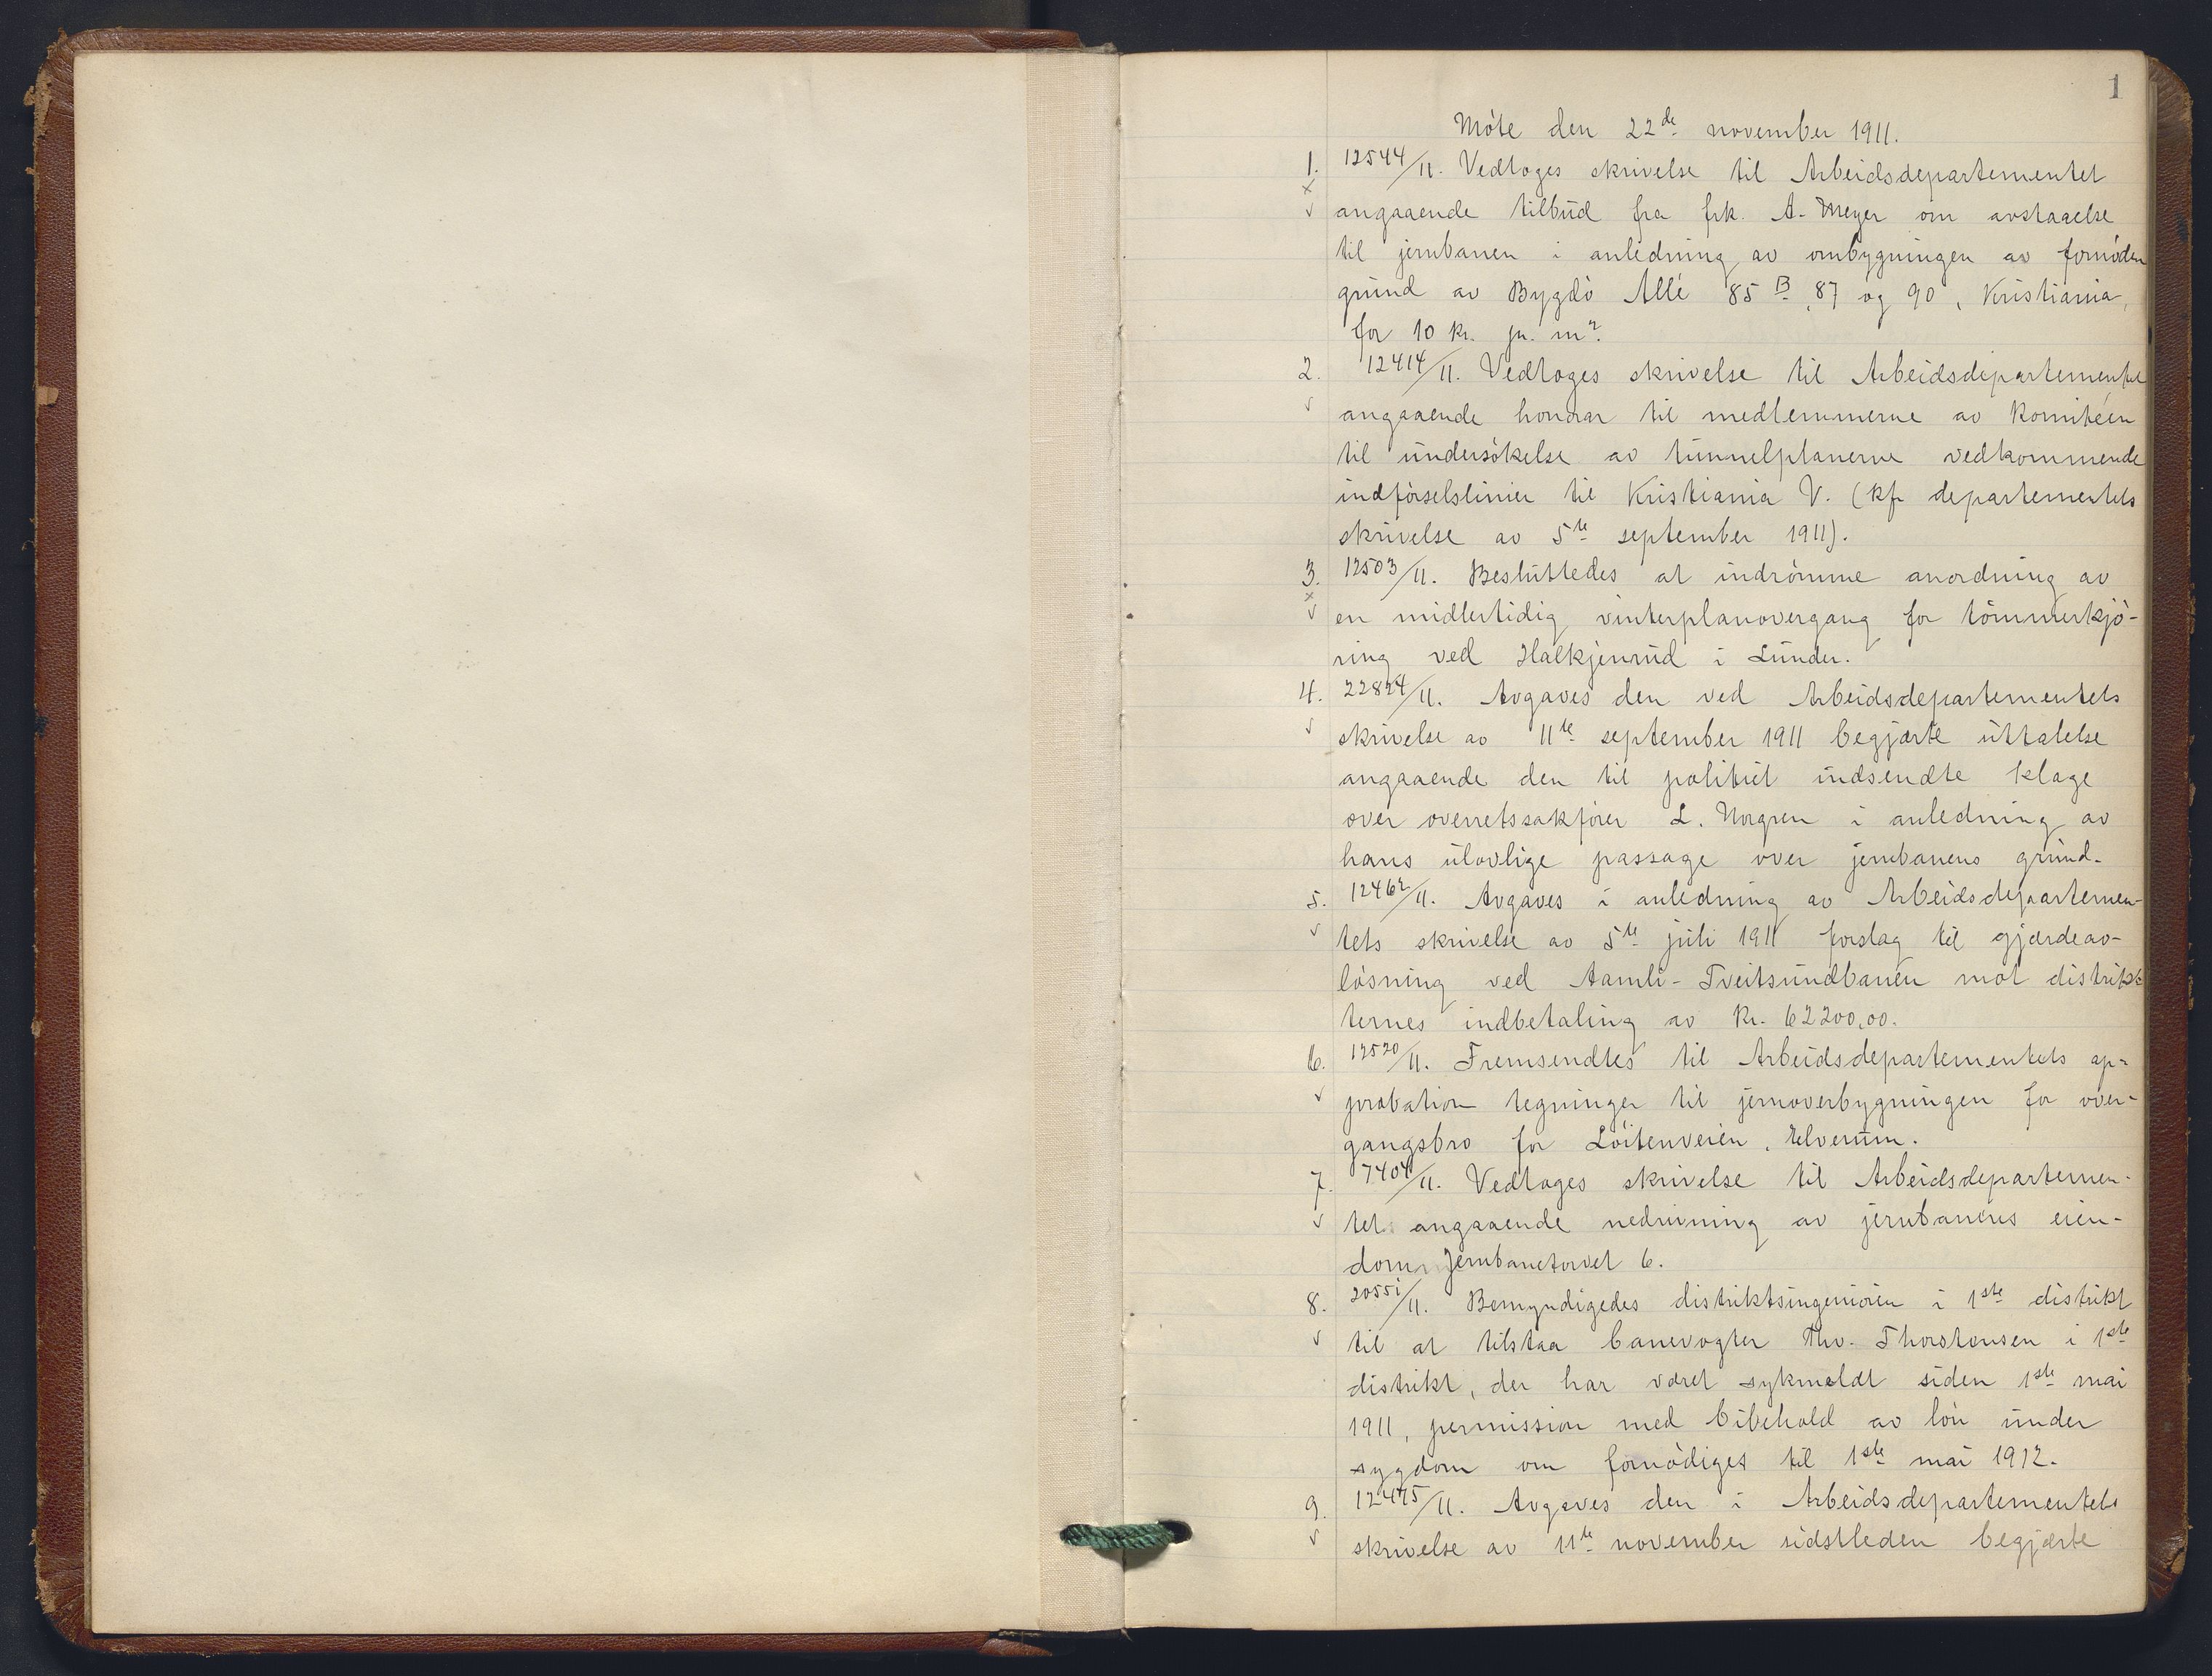 1
Møte den 22de november 1911.
1. 12544/11. Vedtoges skrivelse til Arbeidsdepartementet
x
v angaaende tilbud fra frk. A. Meyer om avstaaelse
til jernbanen i anledning av ombygningen av fornøden
grund av Bygdø Allé 85 B, 87 og 90, Kristiania,
for 10 kr. pr. m2.
2. 12414/11. Vedtoges skrivelse til Arbeidsdepartementet
v angaaende honorar til medlemmerne av komitéen
til undersøkelse av tunnelplanerne vedkommende
indførselslinier til Kristiania V. (kfr departementets
skrivelse av 5te september 1911).
3. 12503/11. Besluttedes at indrømme anordning av
x
v en midlertidig vinterplanovergang for tømmerkjø-
ring ved Halkjenrud i Lunder.
4. 22824/11. Avgaves den ved Arbeidsdepartementets
v skrivelse av 11te september 1911 begjærte uttalelse
angaaende den til politiet indsendte klage
over overretssakfører L. Norgren i anledning av
hans ulovlige passage over jernbanens grund.
5. 12462/11. Avgaves i anledning av Arbeidsdepartemen-
v tets skrivelse av 5te juli 1911 forslag til gjærdeav-
løsning ved Aamli-Tveitsundbanen mot distrik-
ternes indbetaling av kr. 62200,00.
6. 12520/11. Fremsendtes til Arbeidsdepartementets ap-
v probation tegninger til jernoverbygningen for over-
gangsbro for Løitenveien, Elverum.
7. 7404/11. Vedtoges skrivelse til Arbeidsdepartemen-
v tet angaaende nedrivning av jernbanens eien-
dom Jernbanetorvet 6.
8. 20551/11. Bemyndigedes distriktsingeniøren i 1ste distrikt
v til at tilstaa banevogter Thv. Thorstensen i 1ste
distrikt, der har været sykmeldt siden 1ste mai
1911, permission med bibehold av løn under
sygdom om fornødiges til 1ste mai 1912.
9. 12475/11. Avgaves den i Arbeidsdepartementets
v skrivelse av 11te november sidstleden begjærte